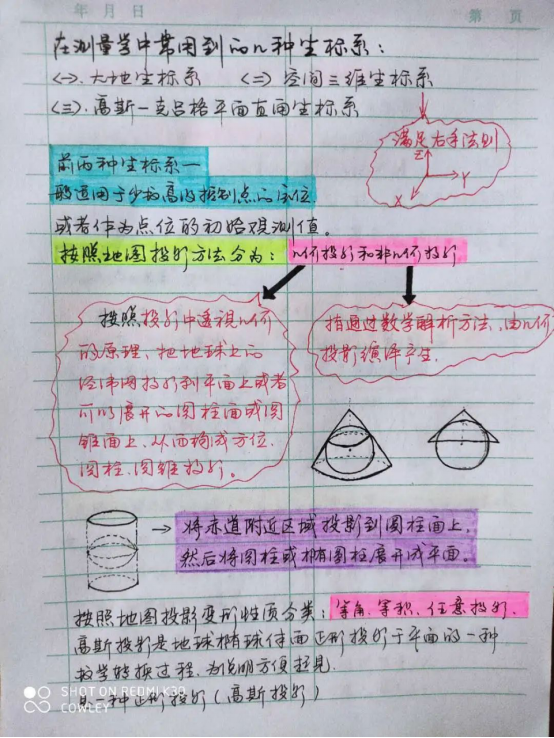 年 月 日
第 页
在测量学中常用到的几种坐标系：
<一>. 大地坐标系 <二> 空间三维坐标系
<三>. 高斯一克吕格平面直角坐标系
满足右手法则
Z
X Y
前两种坐标系一
般适用于少数高级控制点的定位
或者作为点位的初始观测值。
按照地图投影方法分为：几何投影和非几何投影
按照投影中透视几何
的原理、把地球上的
经纬网投影到平面上或者
可以展开的圆柱面或圆
锥面上、从而构成方位、
圆柱、圆锥投影。
指通过数学解析方法、由几何
投影演绎产生.
→ 将赤道附近区域投影到圆柱面上,
然后将圆柱或椭圆柱展开成平面。
按照地图投影变形性质分类：等角、等积、任意投影.
高斯投影是地球椭球体面正形投影于平面的一种
数学转换过程. 为说明方便起见.
一种正形投影(高斯投影)
SHOT ON REDMI K30
COWLEY